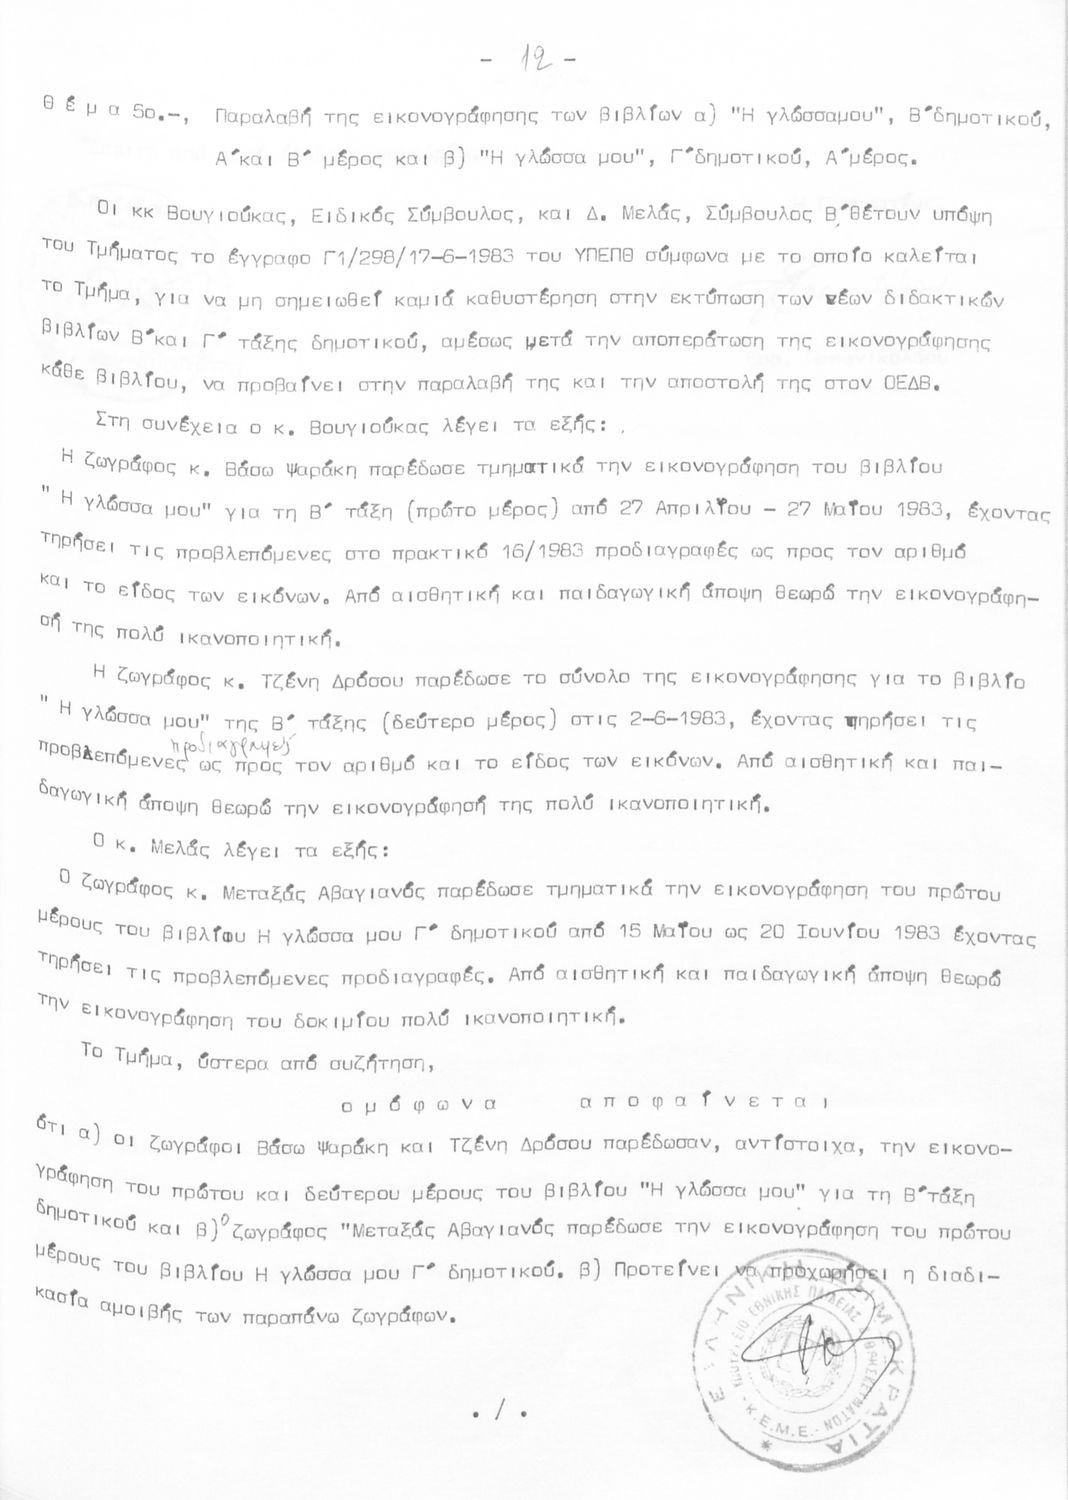 - 12 -
θ έ μ α 5ο.-, Παραλαβή της εικονογράφησης των βιβλίων α) "Η γλώσσαμου", Β΄δημοτικού,
Α΄και Β΄ μέρος και β) "Η γλώσσα μου", Γ΄δημοτικού, Α΄μέρος.
Οι κκ Βουγιούκας, Ειδικός Σύμβουλος, και Δ. Μελάς, Σύμβουλος Β΄θέτουν υπόψη
του Τμήματος το έγγραφο Γ1/298/17-6-1983 του ΥΠΕΠΘ σύμφωνα με το οποίο καλείται
το Τμήμα, για να μη σημειωθεί καμιά καθυστέρηση στην εκτύπωση των νέων διδακτικών
βιβλίων Β΄και Γ΄ τάξης δημοτικού, αμέσως μετά την αποπεράτωση της εικονογράφησης
κάθε βιβλίου, να προβαίνει στην παραλαβή της και την αποστολή της στον ΟΕΔΒ.
Στη συνέχεια ο κ. Βουγιούκας λέγει τα εξής:
Η ζωγράφος κ. Βάσω Ψαράκη παρέδωσε τμηματικά την εικονογράφηση του βιβλίου
" Η γλώσσα μου" για τη Β΄ τάξη (πρώτο μέρος) από 27 Απριλίου - 27 Μαΐου 1983, έχοντας
τηρήσει τις προβλεπόμενες στο πρακτικό 16/1983 προδιαγραφές ως προς τον αριθμό
και το είδος των εικόνων. Από αισθητική και παιδαγωγική άποψη θεωρώ την εικονογράφη-
σή της πολύ ικανοποιητική.
Η ζωγράφος κ. Τζένη Δρόσου παρέδωσε το σύνολο της εικονογράφησης για το βιβλίο
" Η γλώσσα μου" της Β΄ τάξης (δεύτερο μέρος) στις 2-6-1983, έχοντας τηρήσει τις
προδιαγραφές
προβλεπόμενες ως προς τον αριθμό και το είδος των εικόνων. Από αισθητική και παι-
δαγωγική άποψη θεωρώ την εικονογράφησή της πολύ ικανοποιητική.
Ο κ. Μελάς λέγει τα εξής:
Ο ζωγράφος κ. Μεταξάς Αβαγιανός παρέδωσε τμηματικά την εικονογράφηση του πρώτου
μέρους του βιβλίου Η γλώσσα μου Γ΄ δημοτικού από 15 Μαΐου ως 20 Ιουνίου 1983 έχοντας
τηρήσει τις προβλεπόμενες προδιαγραφές. Από αισθητική και παιδαγωγική άποψη θεωρώ
την εικονογράφηση του δοκιμίου πολύ ικανοποιητική.
Το Τμήμα, ύστερα από συζήτηση,
ο μ ό φ ω ν α α π ο φ α ί ν ε τ α ι
ότι α) οι ζωγράφοι Βάσω Ψαράκη και Τζένη Δρόσου παρέδωσαν, αντίστοιχα, την εικονο-
γράφηση του πρώτου και δεύτερου μέρους του βιβλίου "Η γλώσσα μου" για τη Β΄τάξη
δημοτικού και β) ο ζωγράφος "Μεταξάς Αβαγιανός παρέδωσε την εικονογράφηση του πρώτου
μέρους του βιβλίου Η γλώσσα μου Γ΄ δημοτικού. β) Προτείνει να προχωρήσει η διαδι-
κασία αμοιβής των παραπάνω ζωγράφων.
ΕΛΛΗΝΙΚΗ ΔΗΜΟΚΡΑΤΙΑ
ΕΘΝΙΚΗΣ ΠΑΙΔΕΙΑΣ ΘΡΗΣΚΕΥΜΑΤΩΝ
Κ.Ε.Μ.Ε.
. / .